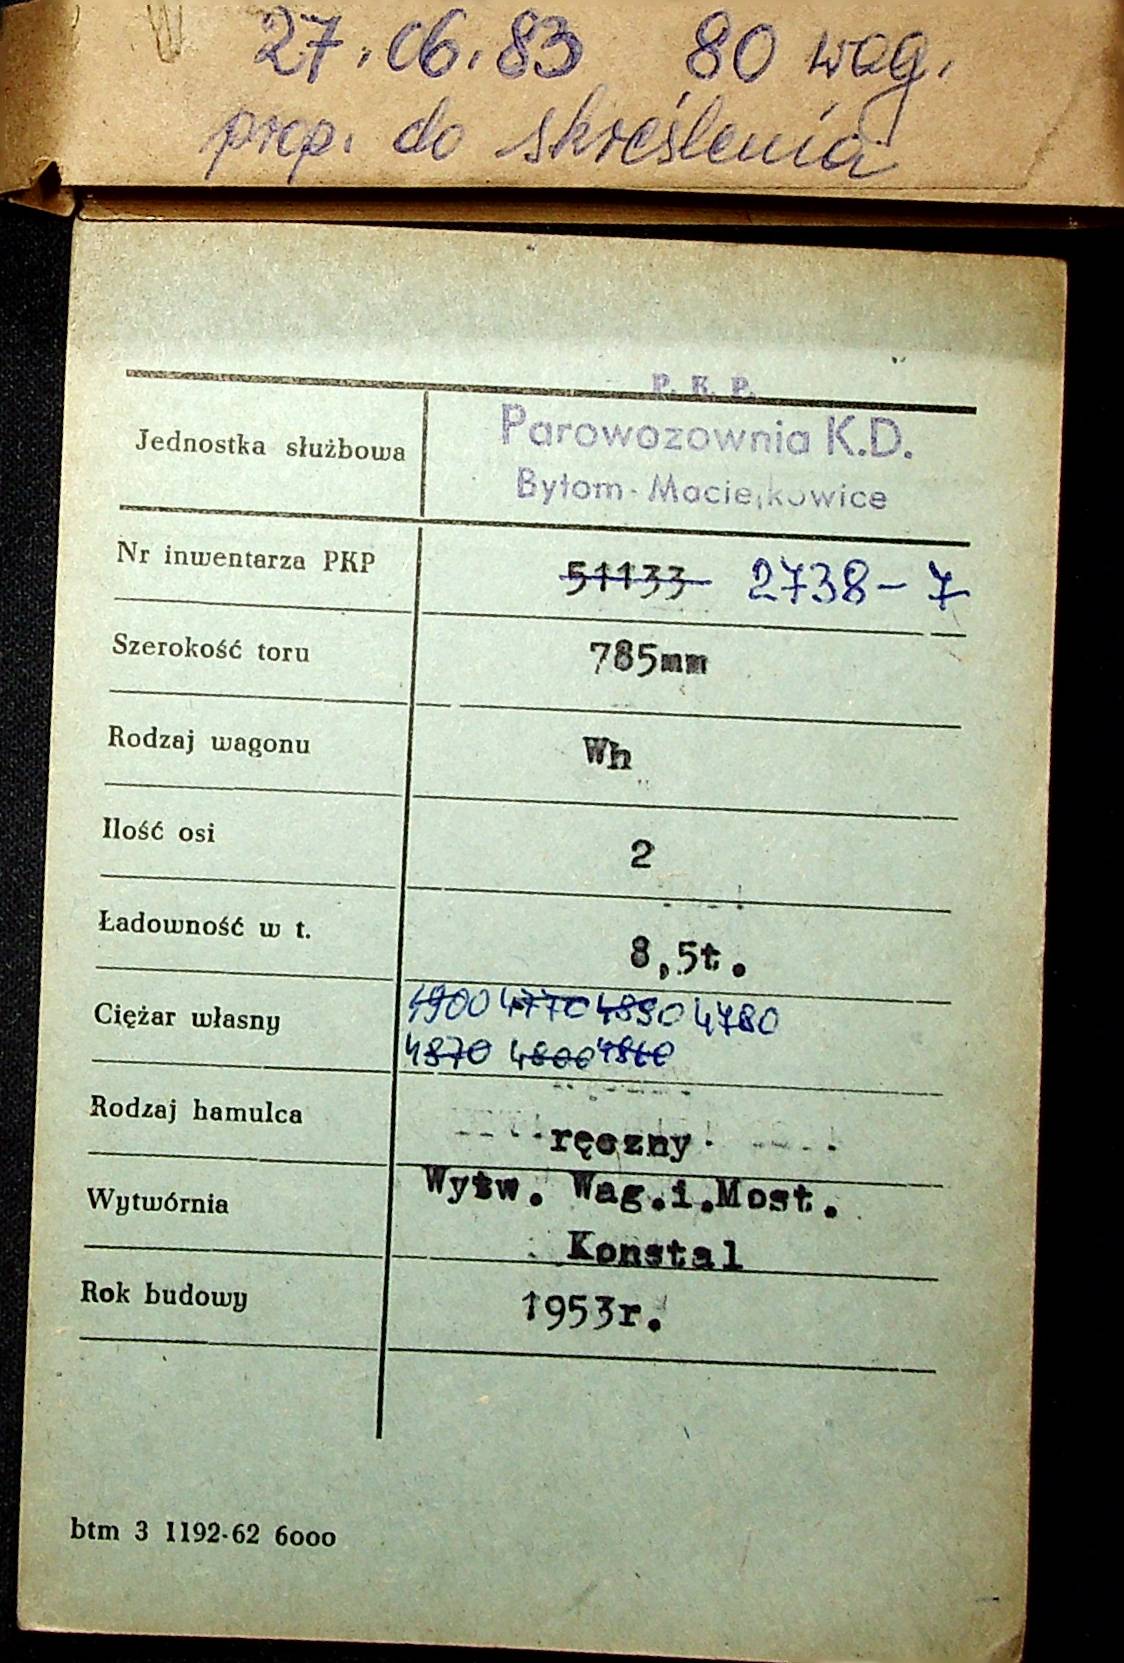 27.06.83 80 wag.
prop. do skreślenia
P. K. P.
Jednostka służbowa Parowozownia K.D.
Bytom-Maciejkowice
Nr inwentarza PKP 51133 2738-7
Szerokość toru 785mm
Rodzaj wagonu Wh
Ilość osi 2
Ładowność w t. 8,5t.
Ciężar własny 4900 4770 4890 4780
4870 4800 4860
Rodzaj hamulca ręczny
Wytwórnia Wytw. Wag.i.Most.
Konstal
Rok budowy 1953r.
btm 3 1192-62 6000